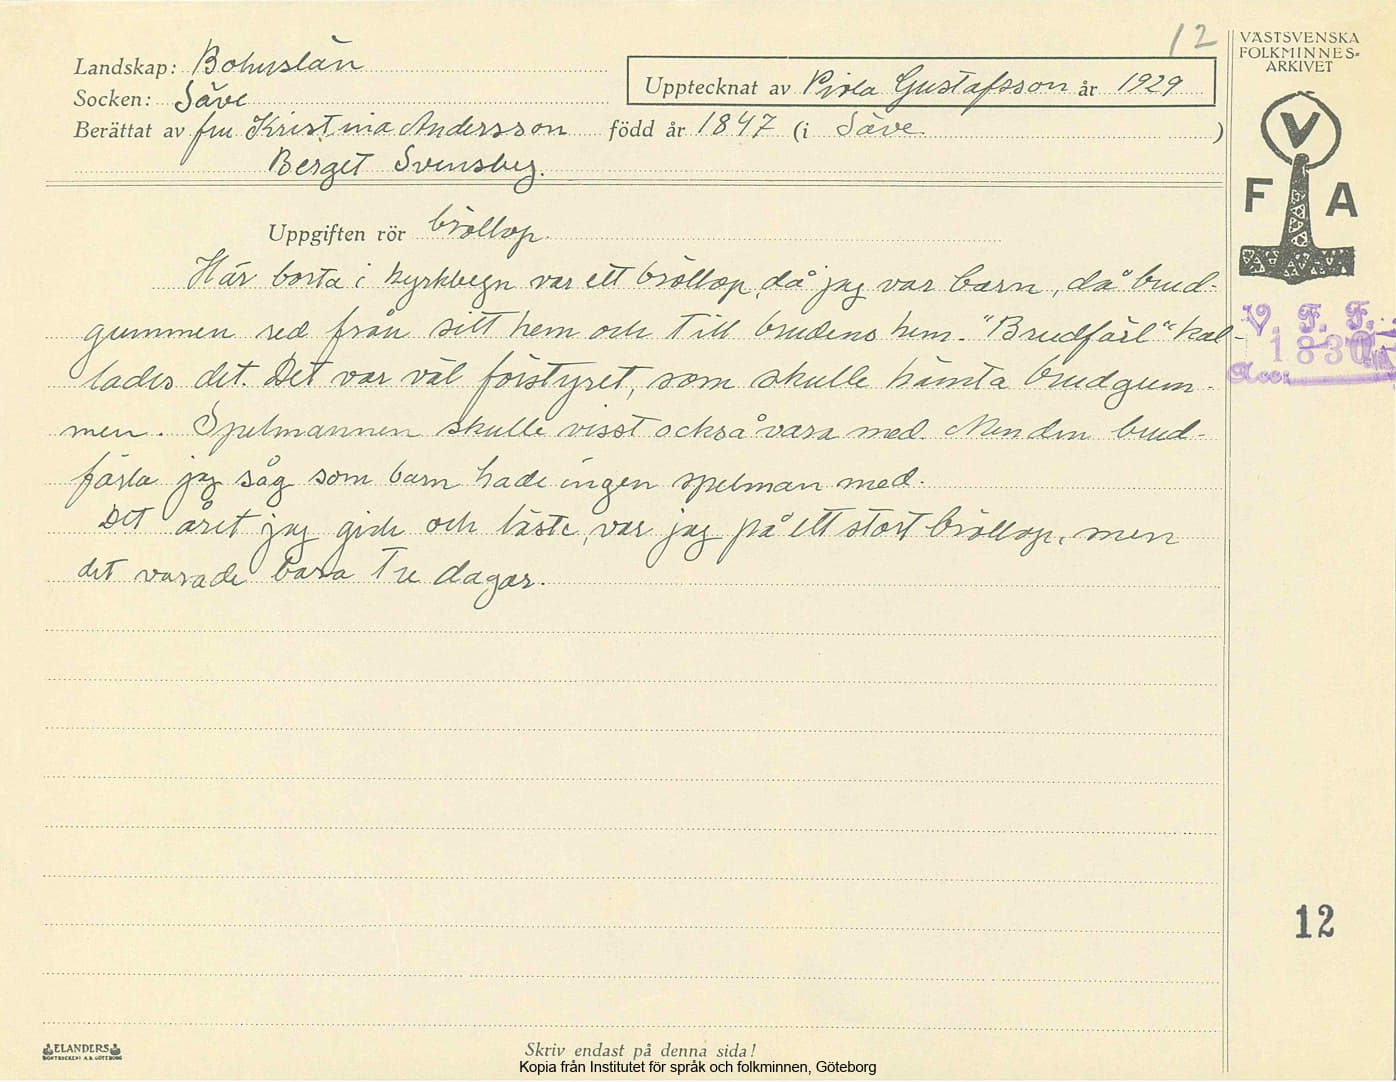 12
VÄSTSVENSKA
FOLKMINNES-
ARKIVET
Landskap: Bohuslän
Upptecknat av Pirla Gustafsson år 1929
Socken: Säve
Berättat av fru Kristina Andersson född år 1847 (i Säve )
Berget Svensby.
V
F A
Uppgiften rör bröllop.
Här borta i kyrkbyn var ett bröllop, då jag var barn, då brud-
gummen red från sitt hem och till brudens hem. "Brudfärl" kal-
lades det. Det var väl förstyret, som skulle hämta brudgum-
men. Spelmannen skulle visst också vara med. Men den brud-
färla jag såg som barn hade ingen spelman med.
Det året jag gick och läste, var jag på ett stort bröllop, men
det varade bara tre dagar.
V. F. F.
1830
Acc:
12
ELANDERS
BOKTRYCKERI A.B. GÖTEBORG
Skriv endast på denna sida!
Kopia från Institutet för språk och folkminnen, Göteborg